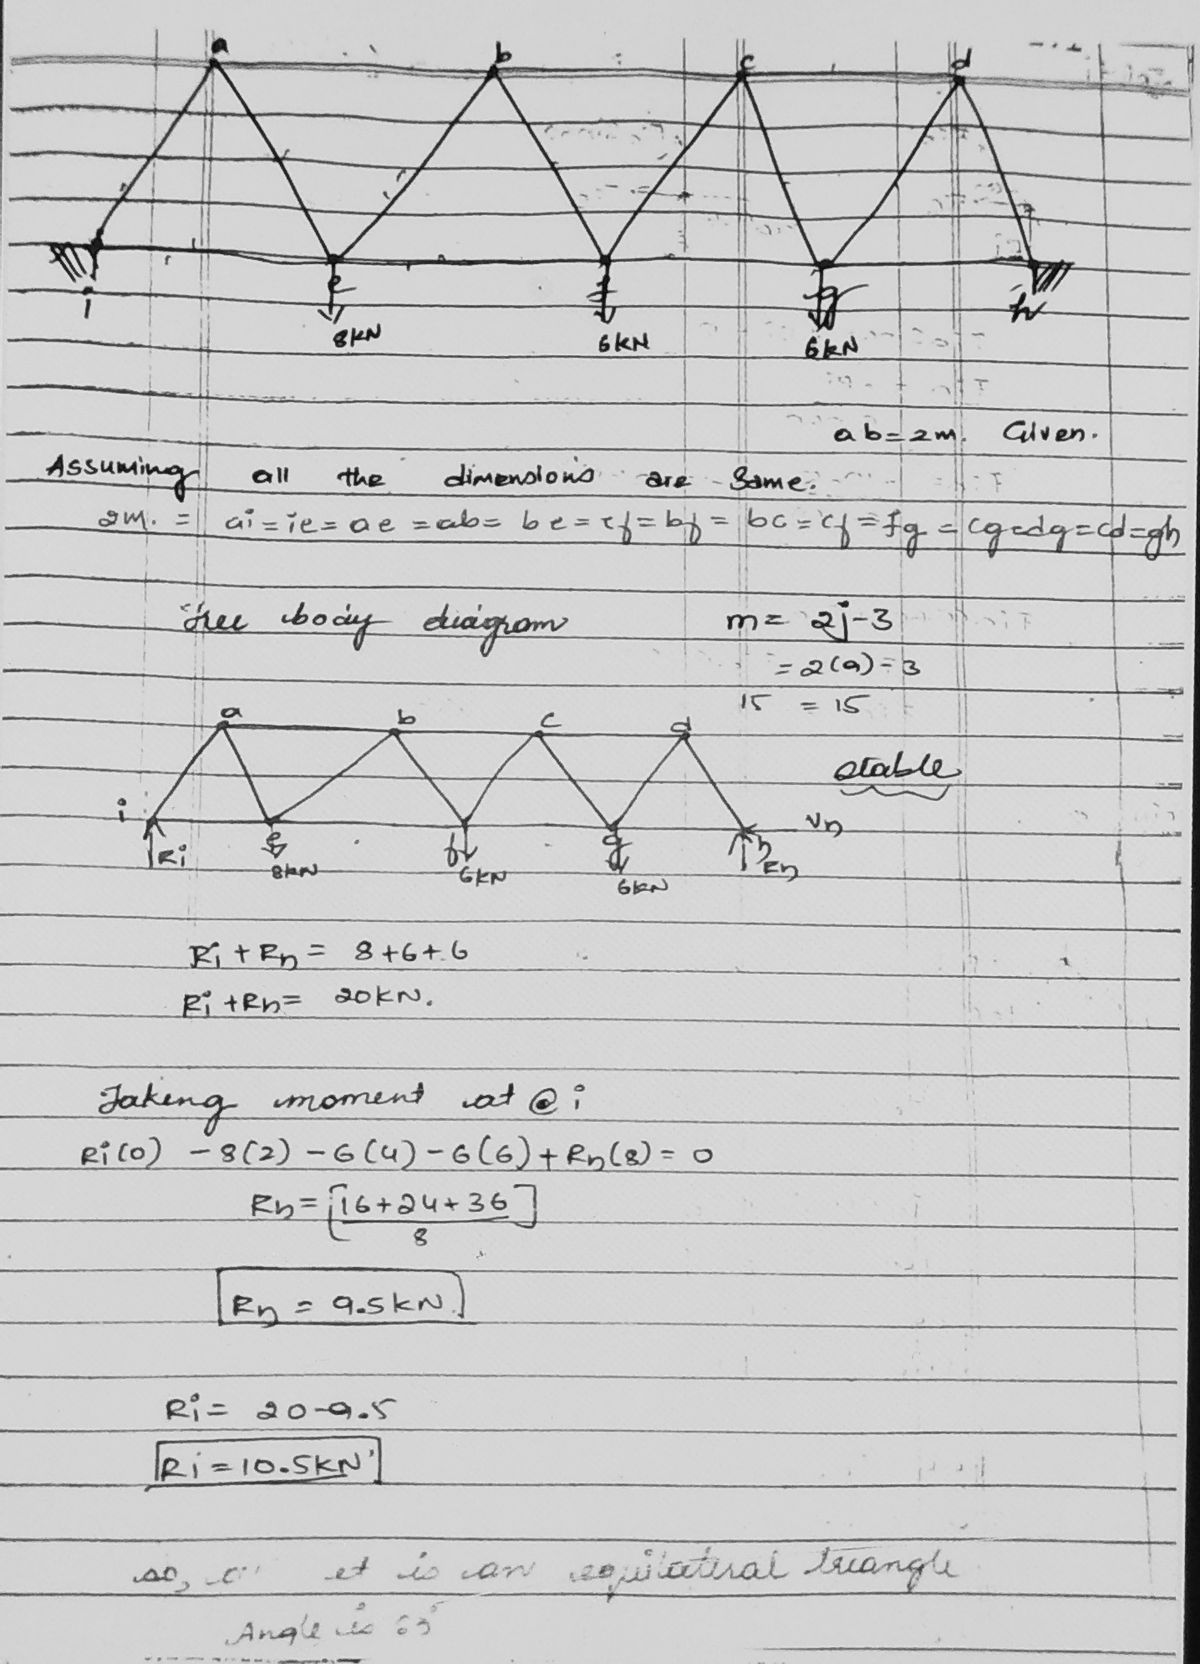 a b c d
i e f g h
8KN 6KN 6KN
ab=2m. Given.
Assuming all the dimensions are same.
2m. = ai=ie=ae=ab=be=ef=bf=bc=cf=fg=cg=dg=cd=gh
free body diagram m= 2j-3
=2(9)-3
15 = 15
a b c d
stable
i e f g h
Ri 8KN 6KN 6KN Rh
Ri+Rh= 8+6+6
Ri+Rh= 20KN.
Taking moment at @ i
Ri(0) -8(2) -6(4) -6(6)+Rh(8)=0
Rh=[16+24+36]
8
Rh = 9.5KN
Ri= 20-9.5
Ri=10.5KN
so, it is an equilateral triangle
Angle is